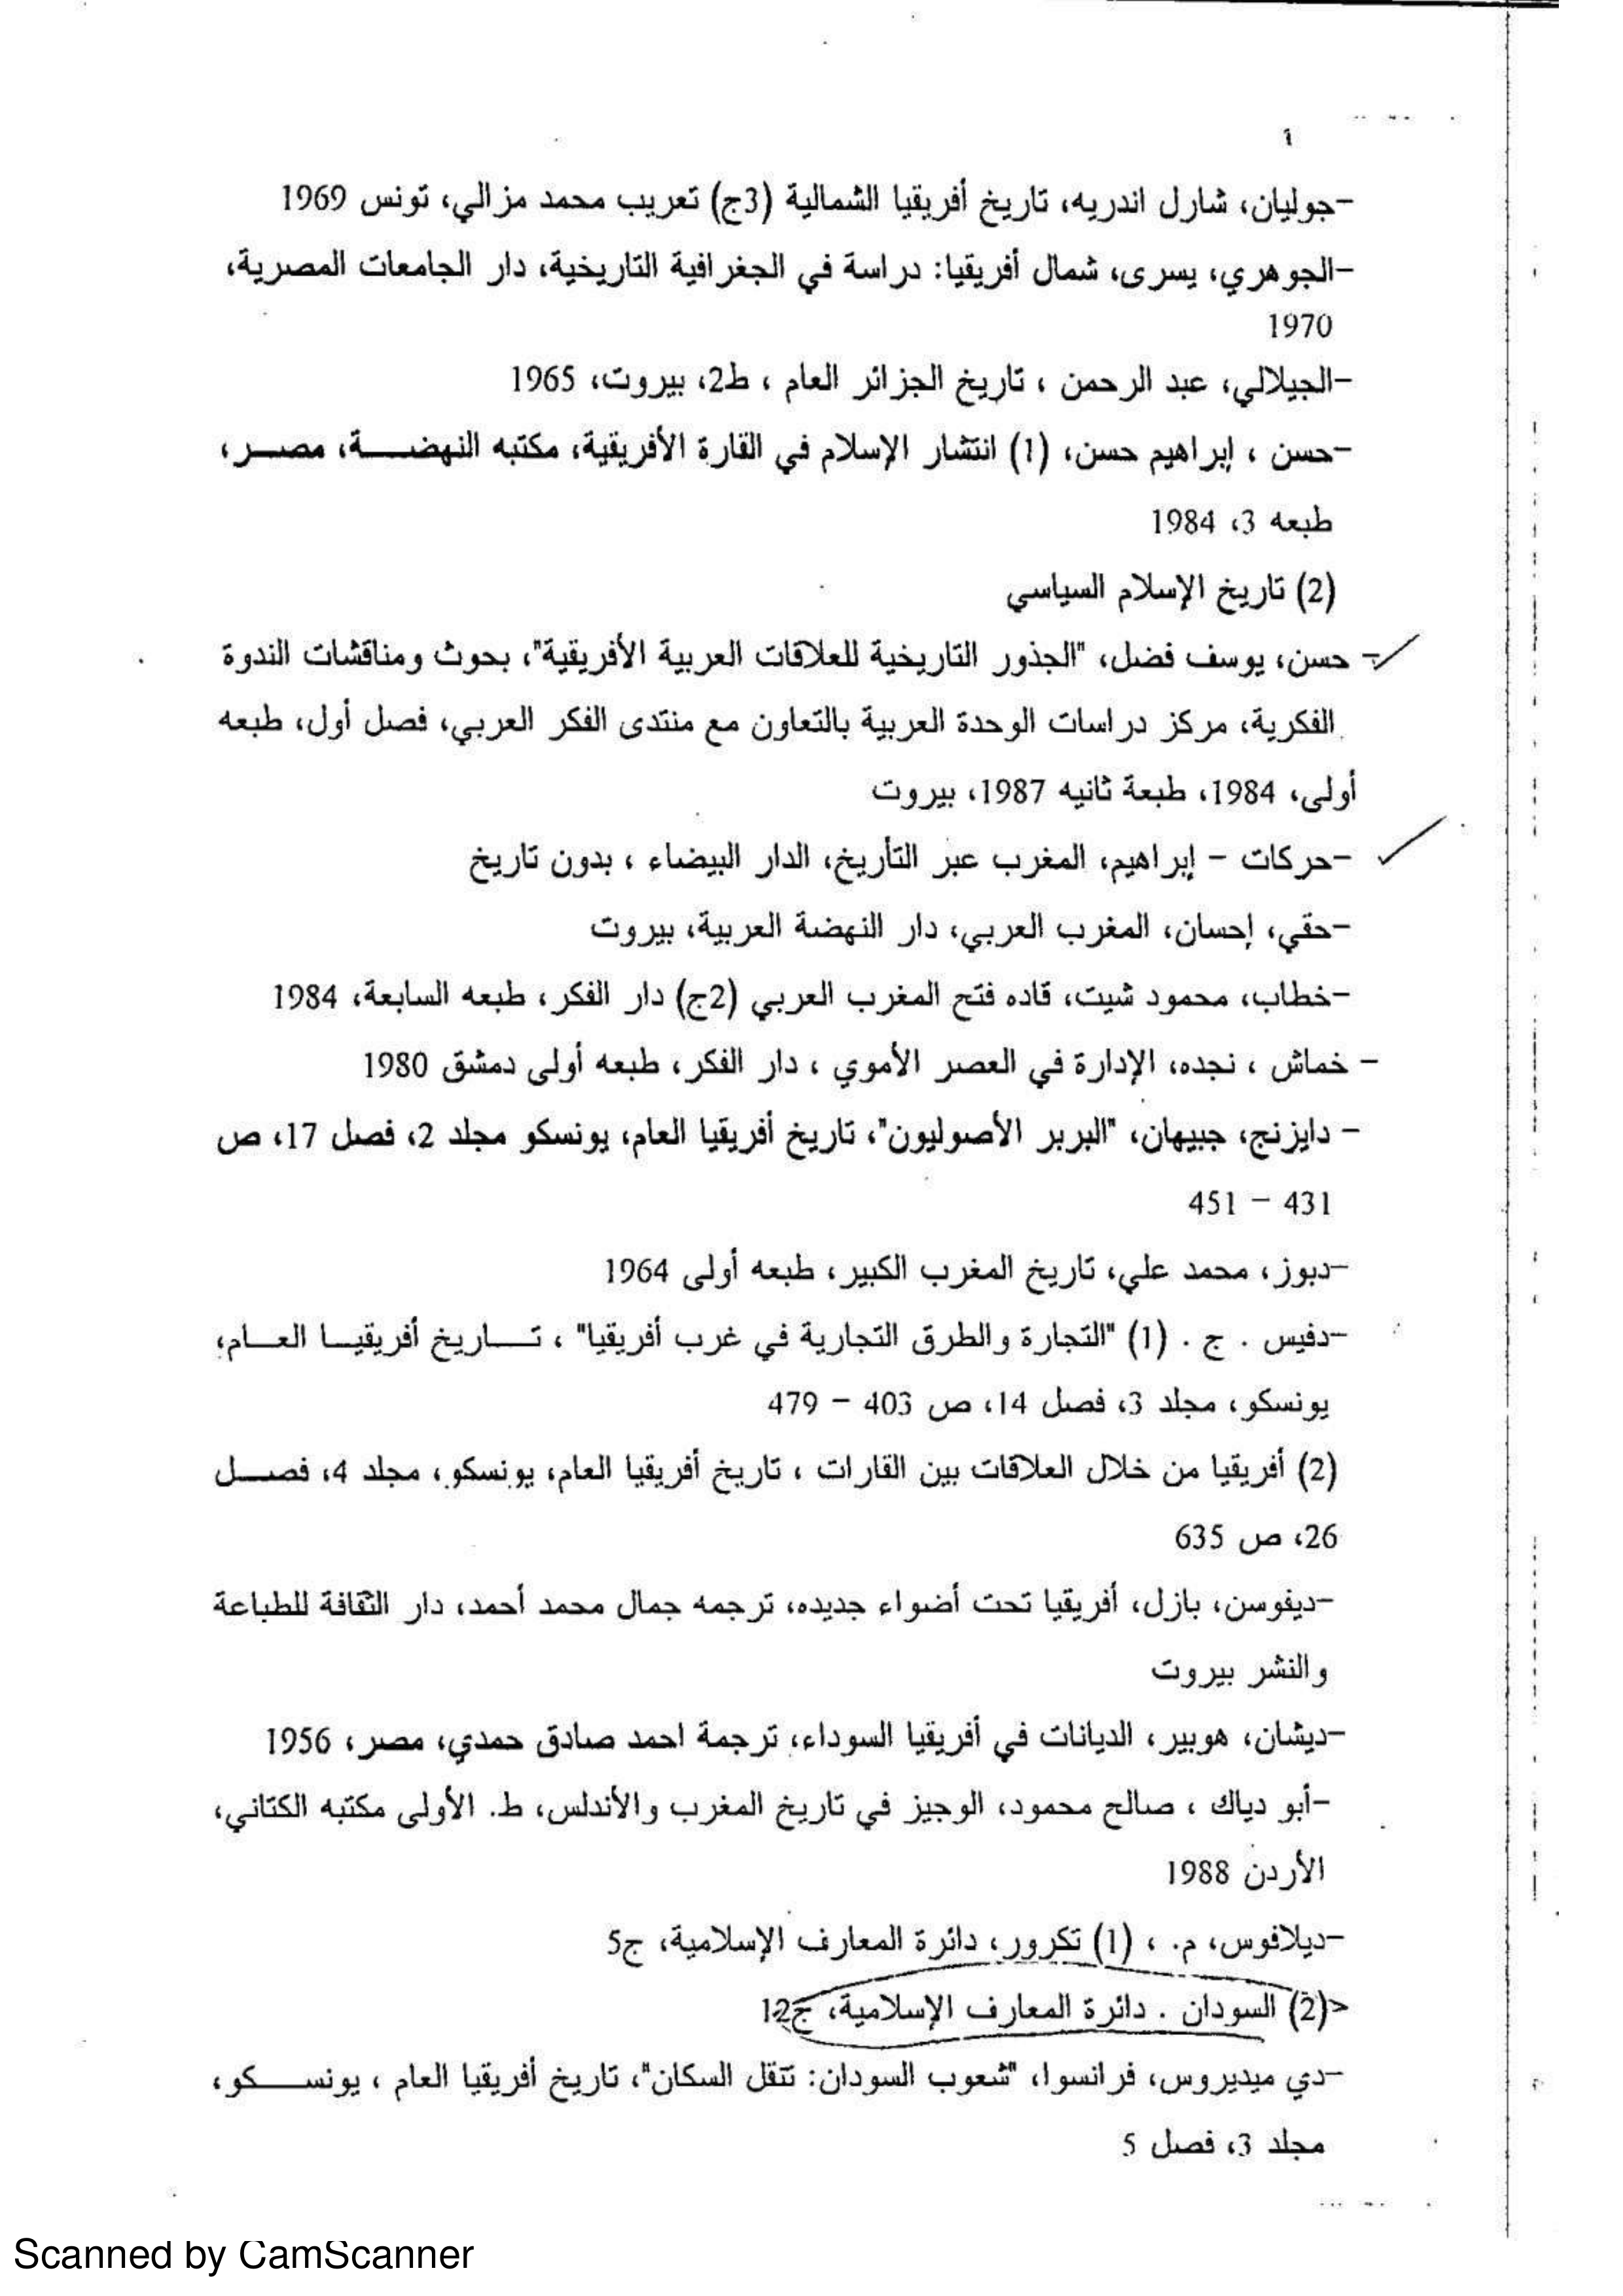 -جوليان، شارل اندريه، تاريخ أفريقيا الشمالية (3ج) تعريب محمد مزالي، تونس 1969
-الجوهري، يسرى، شمال أفريقيا: دراسة في الجغرافية التاريخية، دار الجامعات المصرية،
1970
-الجيلالي، عبد الرحمن ، تاريخ الجزائر العام ، ط2، بيروت، 1965
-حسن ، إبراهيم حسن، (1) انتشار الإسلام في القارة الأفريقية، مكتبه النهضة، مصر،
طبعه 3، 1984
(2) تاريخ الإسلام السياسي
- حسن، يوسف فضل، "الجذور التاريخية للعلاقات العربية الأفريقية"، بحوث ومناقشات الندوة
الفكرية، مركز دراسات الوحدة العربية بالتعاون مع منتدى الفكر العربي، فصل أول، طبعه
أولى، 1984، طبعة ثانيه 1987، بيروت
-حركات - إبراهيم، المغرب عبر التأريخ، الدار البيضاء ، بدون تاريخ
-حقي، إحسان، المغرب العربي، دار النهضة العربية، بيروت
-خطاب، محمود شيت، قاده فتح المغرب العربي (2ج) دار الفكر، طبعه السابعة، 1984
- خماش ، نجده، الإدارة في العصر الأموي ، دار الفكر، طبعه أولى دمشق 1980
- دايزنج، جيبهان، "البربر الأصوليون"، تاريخ أفريقيا العام، يونسكو مجلد 2، فصل 17، ص
431 - 451
-دبوز، محمد علي، تاريخ المغرب الكبير، طبعه أولى 1964
-دفيس . ج . (1) "التجارة والطرق التجارية في غرب أفريقيا" ، تاريخ أفريقيا العام،
يونسكو، مجلد 3، فصل 14، ص 403 - 479
(2) أفريقيا من خلال العلاقات بين القارات ، تاريخ أفريقيا العام، يونسكو، مجلد 4، فصل
26، ص 635
-ديفوسن، بازل، أفريقيا تحت أضواء جديده، ترجمه جمال محمد أحمد، دار الثقافة للطباعة
والنشر بيروت
-ديشان، هوبير، الديانات في أفريقيا السوداء، ترجمة احمد صادق حمدي، مصر، 1956
-أبو دياك ، صالح محمود، الوجيز في تاريخ المغرب والأندلس، ط. الأولى مكتبه الكتاني،
الأردن 1988
-ديلافوس، م. ، (1) تكرور، دائرة المعارف الإسلامية، ج5
<(2) السودان . دائرة المعارف الإسلامية، ج12
-دي ميديروس، فرانسوا، "شعوب السودان: تنقل السكان"، تاريخ أفريقيا العام ، يونسكو،
مجلد 3، فصل 5
Scanned by CamScanner